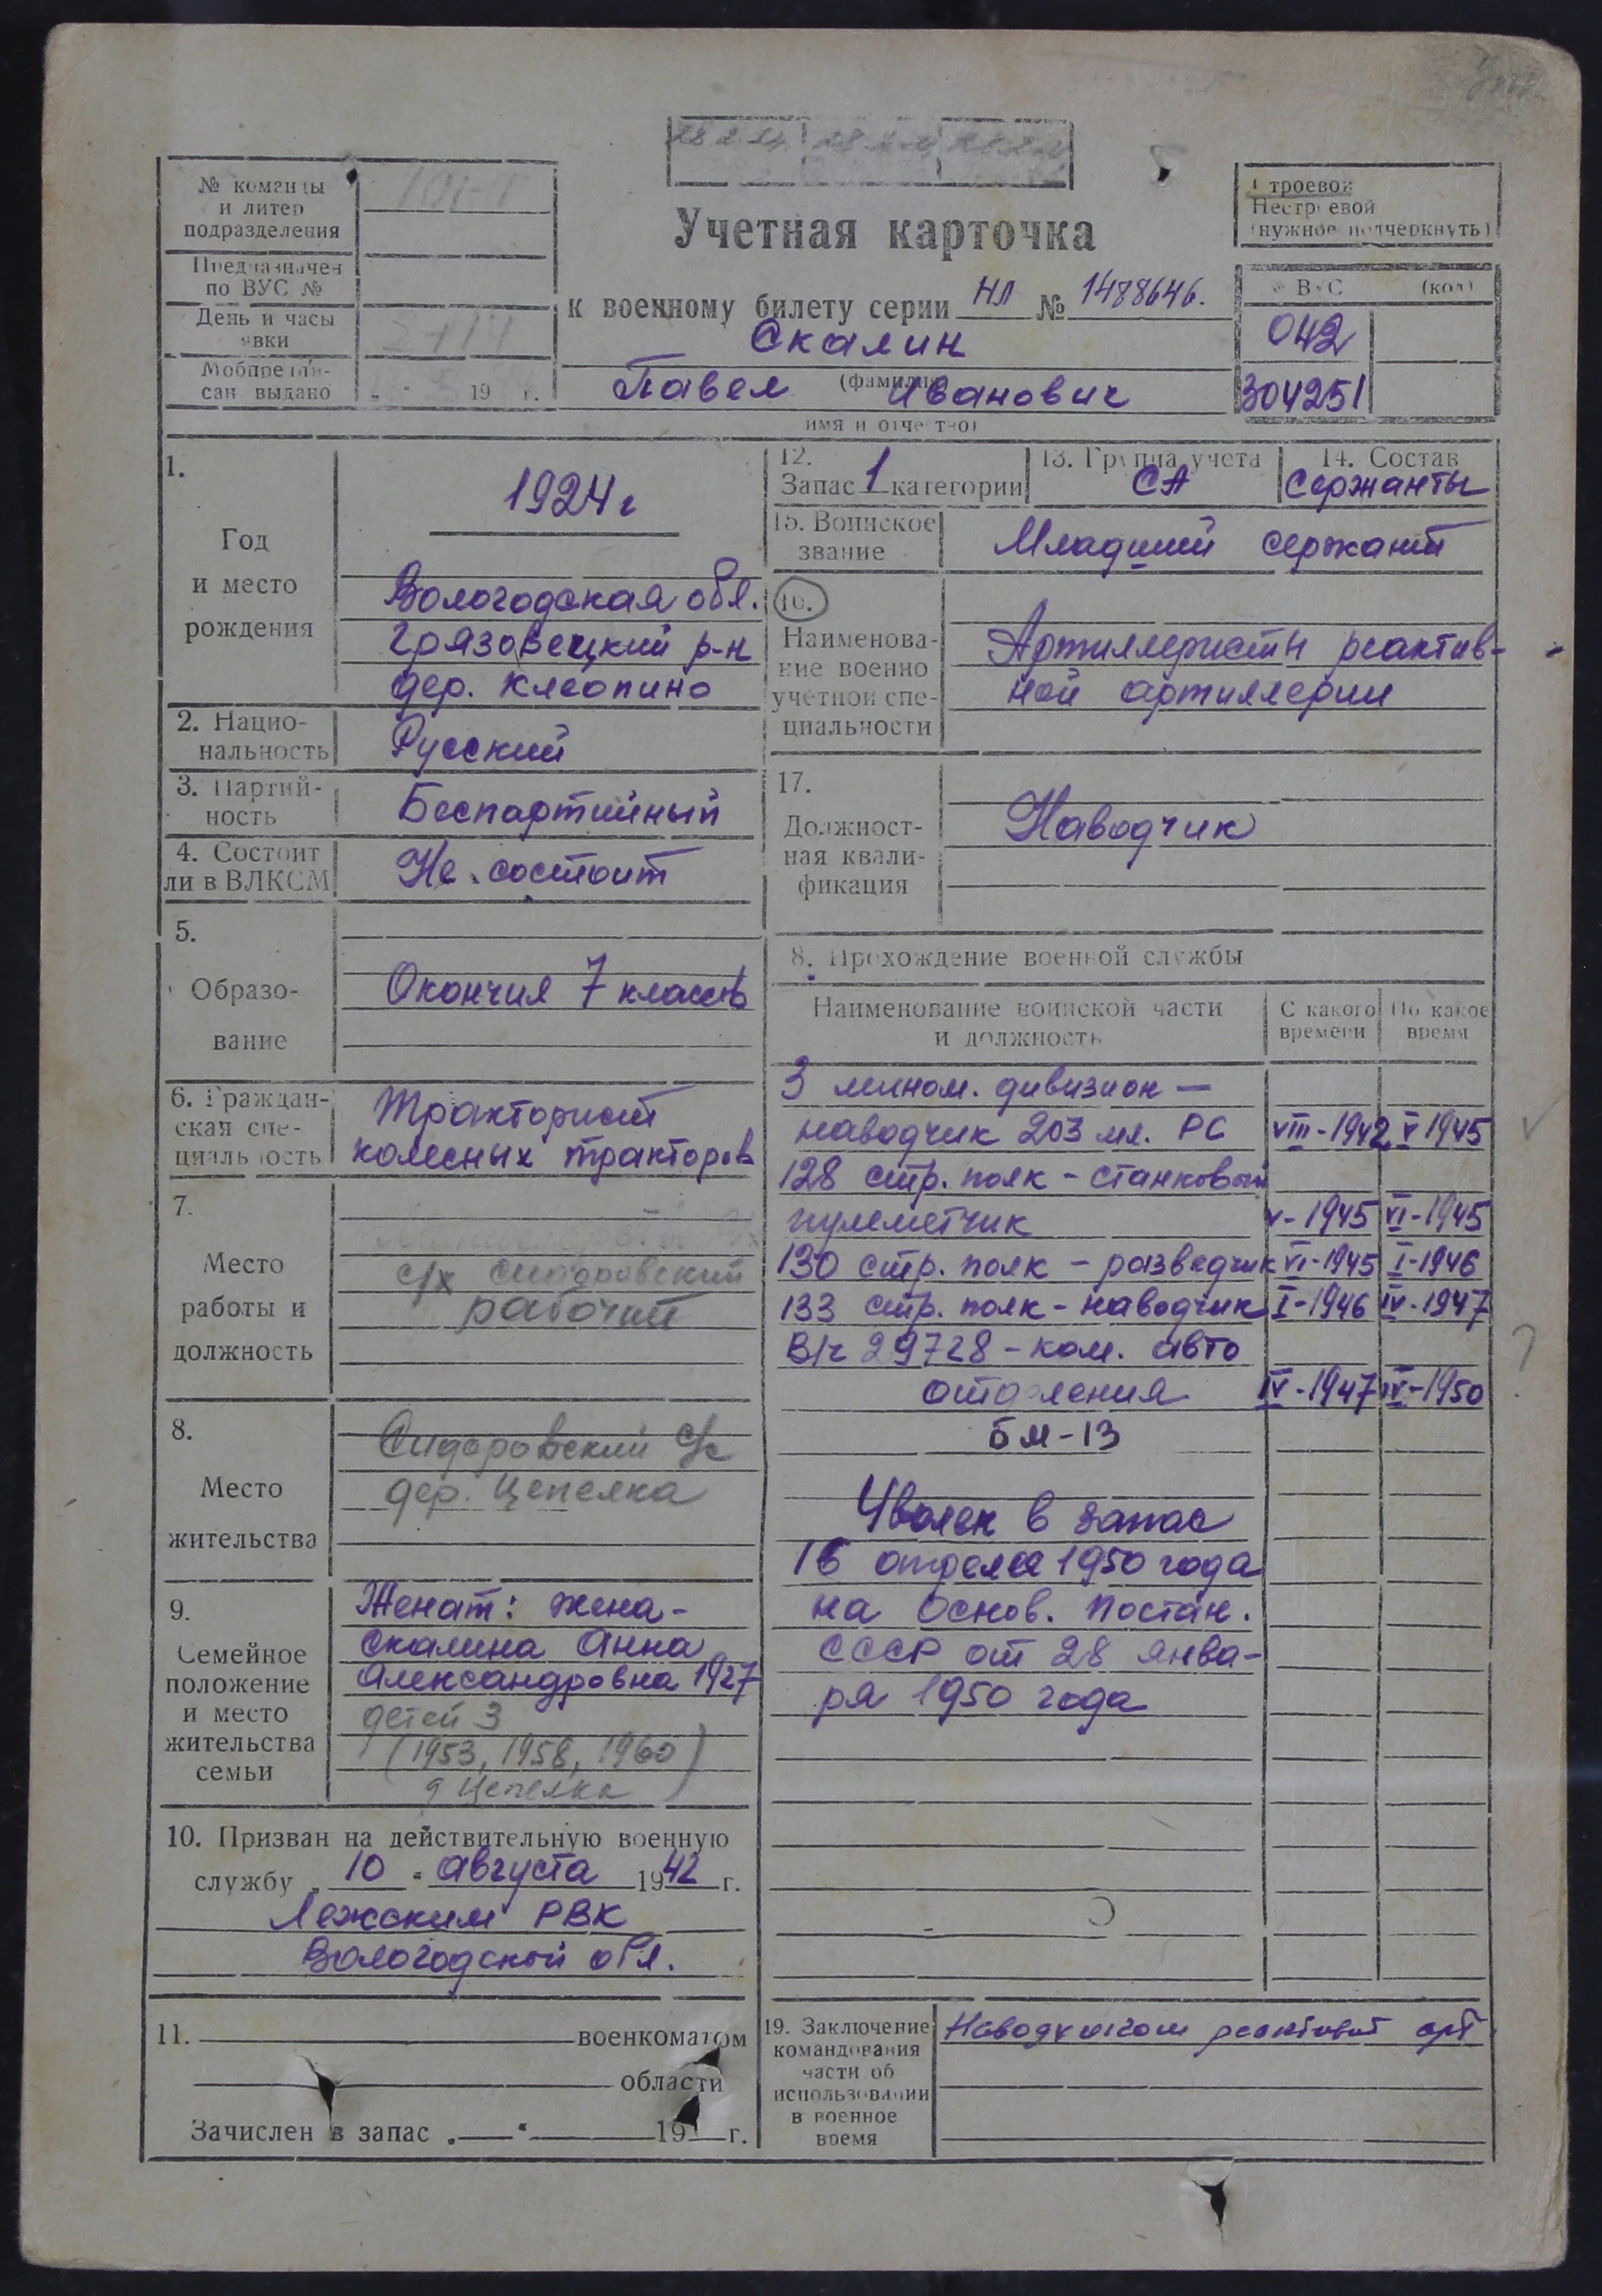 № команды
и литер
подразделения
Предназначен
по ВУС №
День и часы
явки
Мобпредпи-
сан. выдано
„ 19 г.
Учетная карточка
к военному билету серии НЛ № 1488646.
Скалин
(фамилия
Павел Иванович
имя и отчество)
Строевой
Нестроевой
(нужное подчеркнуть)
№ ВУС (код)
042
304251
1.
Год
и место
рождения
1924 г
Вологодская обл.
Грязовецкий р-н
дер. Клеопино
2. Нацио-
нальность
Русский
3. Партий-
ность
Беспартийный
4. Состоит
ли в ВЛКСМ
Не состоит
5.
Образо-
вание
Окончил 7 классов
6. Граждан-
ская спе-
циальность
Тракторист
колесных тракторов
7.
Место
работы и
должность
с/х Сидоровский
рабочий
8.
Место
жительства
Сидоровский с/с
дер. Цепелка
9.
Семейное
положение
и место
жительства
семьи
Женат: жена-
Скалина Анна
Александровна 1927
детей 3
(1953, 1958, 1960)
д Цепелка
10. Призван на действительную военную
службу „ 10 " августа 1942 г.
Лежским РВК
Вологодской обл.
11. военкоматом
области
Зачислен в запас „ " 19 г.
12.
Запас 1 категории
13. Группа учета
СА
14. Состав
Сержанты
15. Воинское
звание
Младший сержант
16.
Наименова-
ние военно
учетной спе-
циальности
Артиллеристы реактив-
ной артиллерии
17.
Должност-
ная квали-
фикация
Наводчик
8. Прохождение военной службы
Наименование воинской части
и должность
С какого
времени
По какое
время
3 мином. дивизион —
наводчик 203 мл. РС VIII-1942 V 1945
128 стр. полк - станковый
пулеметчик V-1945 VI-1945
130 стр. полк - разведчик VI-1945 I-1946
133 стр. полк - наводчик I-1946 IV-1947
В/ч 29728 - ком. авто
отделения IV-1947 IV-1950
БМ-13
Уволен в запас
16 апреля 1950 года
на основ. постан.
СССР от 28 янва-
ря 1950 года
19. Заключение
командования
части об
использовании
в военное
время
Наводчиком реактивной арт